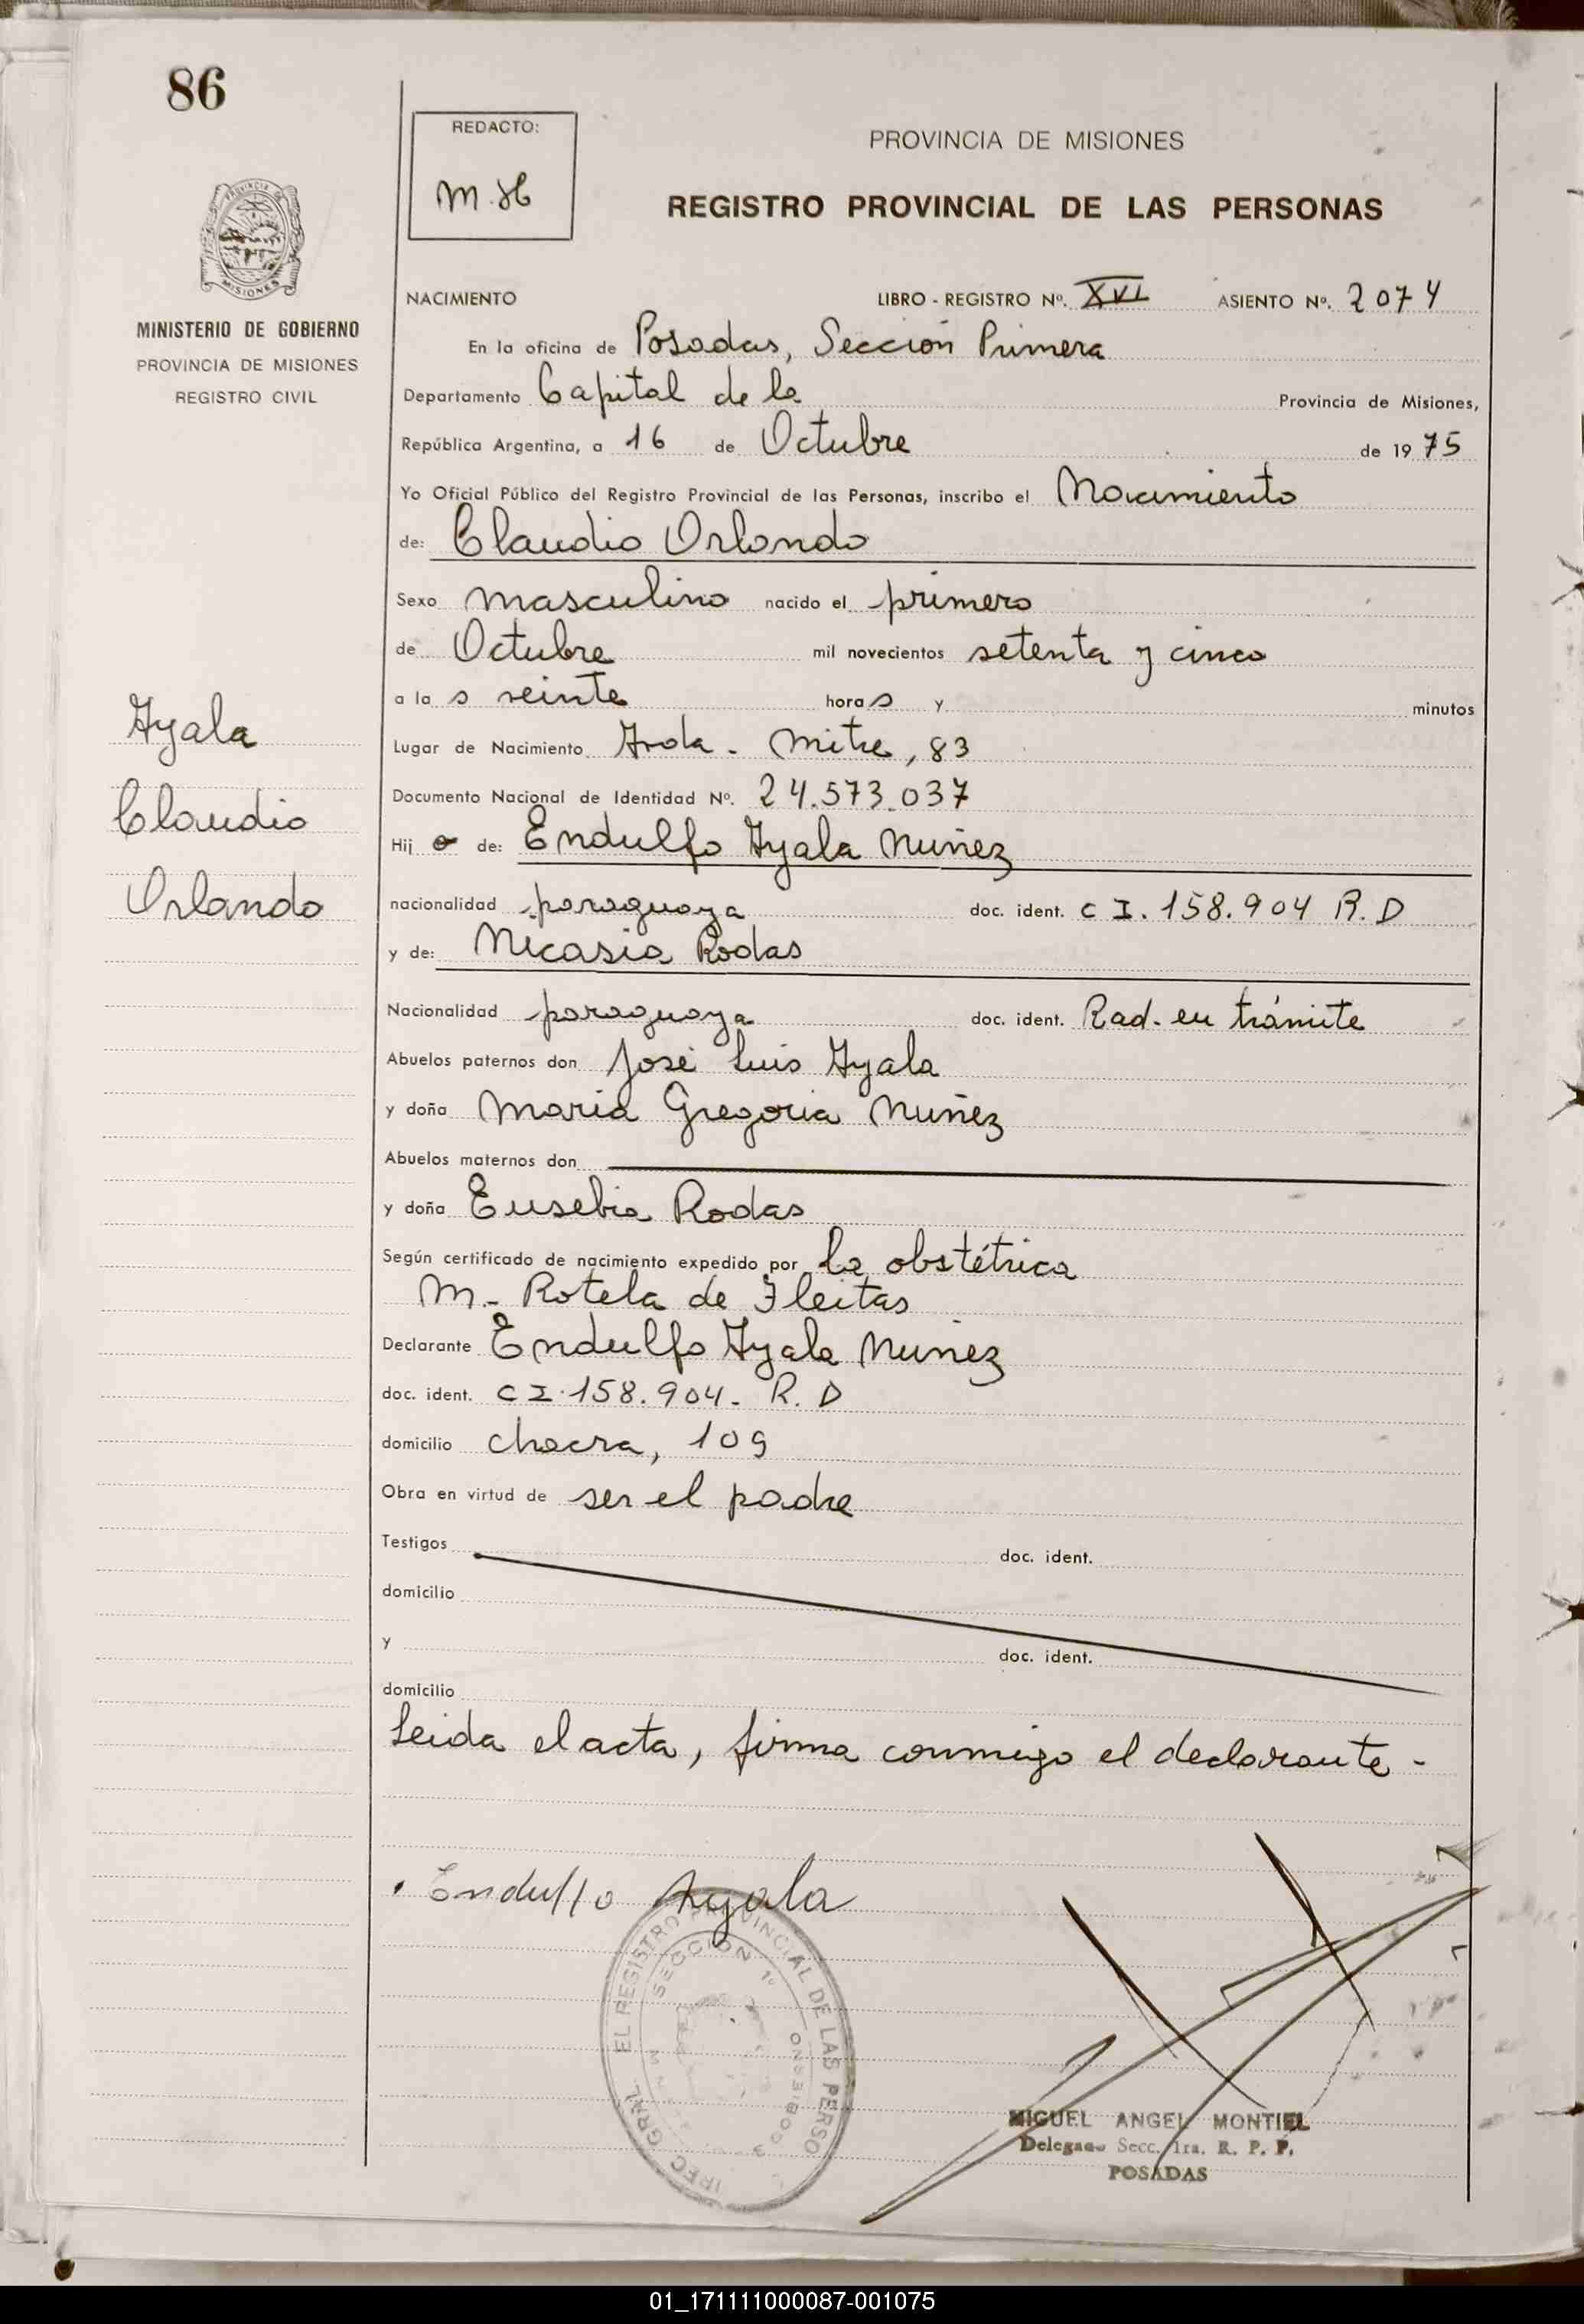 86
REDACTO:
M.H
PROVINCIA DE MISIONES
REGISTRO PROVINCIAL DE LAS PERSONAS
PROVINCIA DE
MISIONES
MINISTERIO DE GOBIERNO
PROVINCIA DE MISIONES
REGISTRO CIVIL
NACIMIENTO LIBRO - REGISTRO Nº. XVI ASIENTO Nº. 2074
En la oficina de Posadas, Sección Primera
Departamento Capital de la Provincia de Misiones,
República Argentina, a 16 de Octubre de 1975
Yo Oficial Público del Registro Provincial de las Personas, inscribo el Nacimiento
de: Claudio Orlando
Sexo masculino nacido el primero
de Octubre mil novecientos setenta y cinco
a las veinte horas y minutos
Lugar de Nacimiento Avda. Mitre, 83
Documento Nacional de Identidad Nº. 24.573.037
Hijo de: Endulfo Ayala Nuñez
nacionalidad paraguaya doc. ident. CI. 158.904 R.D
y de: Nicasia Rodas
Nacionalidad paraguaya doc. ident. Rad. en trámite
Abuelos paternos don José Luis Ayala
y doña Maria Gregoria Nuñez
Abuelos maternos don
y doña Eusebia Rodas
Según certificado de nacimiento expedido por la obstétrica
M.- Rotela de Fleitas
Declarante Endulfo Ayala Nuñez
doc. ident. CI.158.904. R.D
domicilio chacra, 109
Obra en virtud de ser el padre
Testigos doc. ident.
domicilio
y doc. ident.
domicilio
Leida el acta, firma conmigo el declarante.-
Ayala
Claudio
Orlando
Endulfo Ayala
EL REGISTRO PROVINCIAL DE LAS PERSO
GRAL.
SECCION 1º
MIGUEL ANGEL MONTIEL
Delegado Secc. 1ra. R. P. P.
POSADAS
01_171111000087-001075